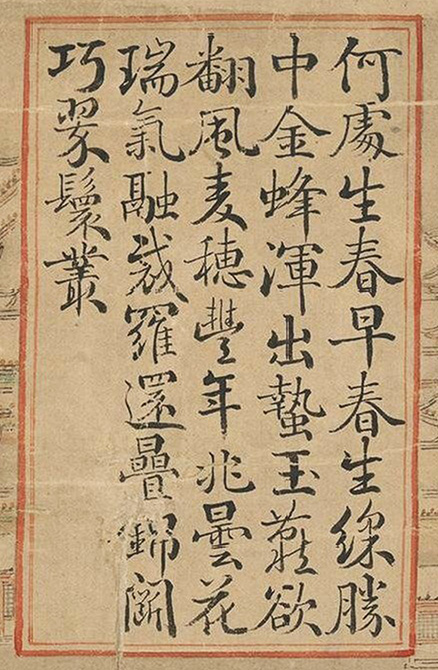 何處生春早春生綵勝
中金蜂渾出蟄玉燕欲
翻風麦穗豐年兆曇花
瑞氣融裁羅還疊錦鬭
巧翠鬟叢